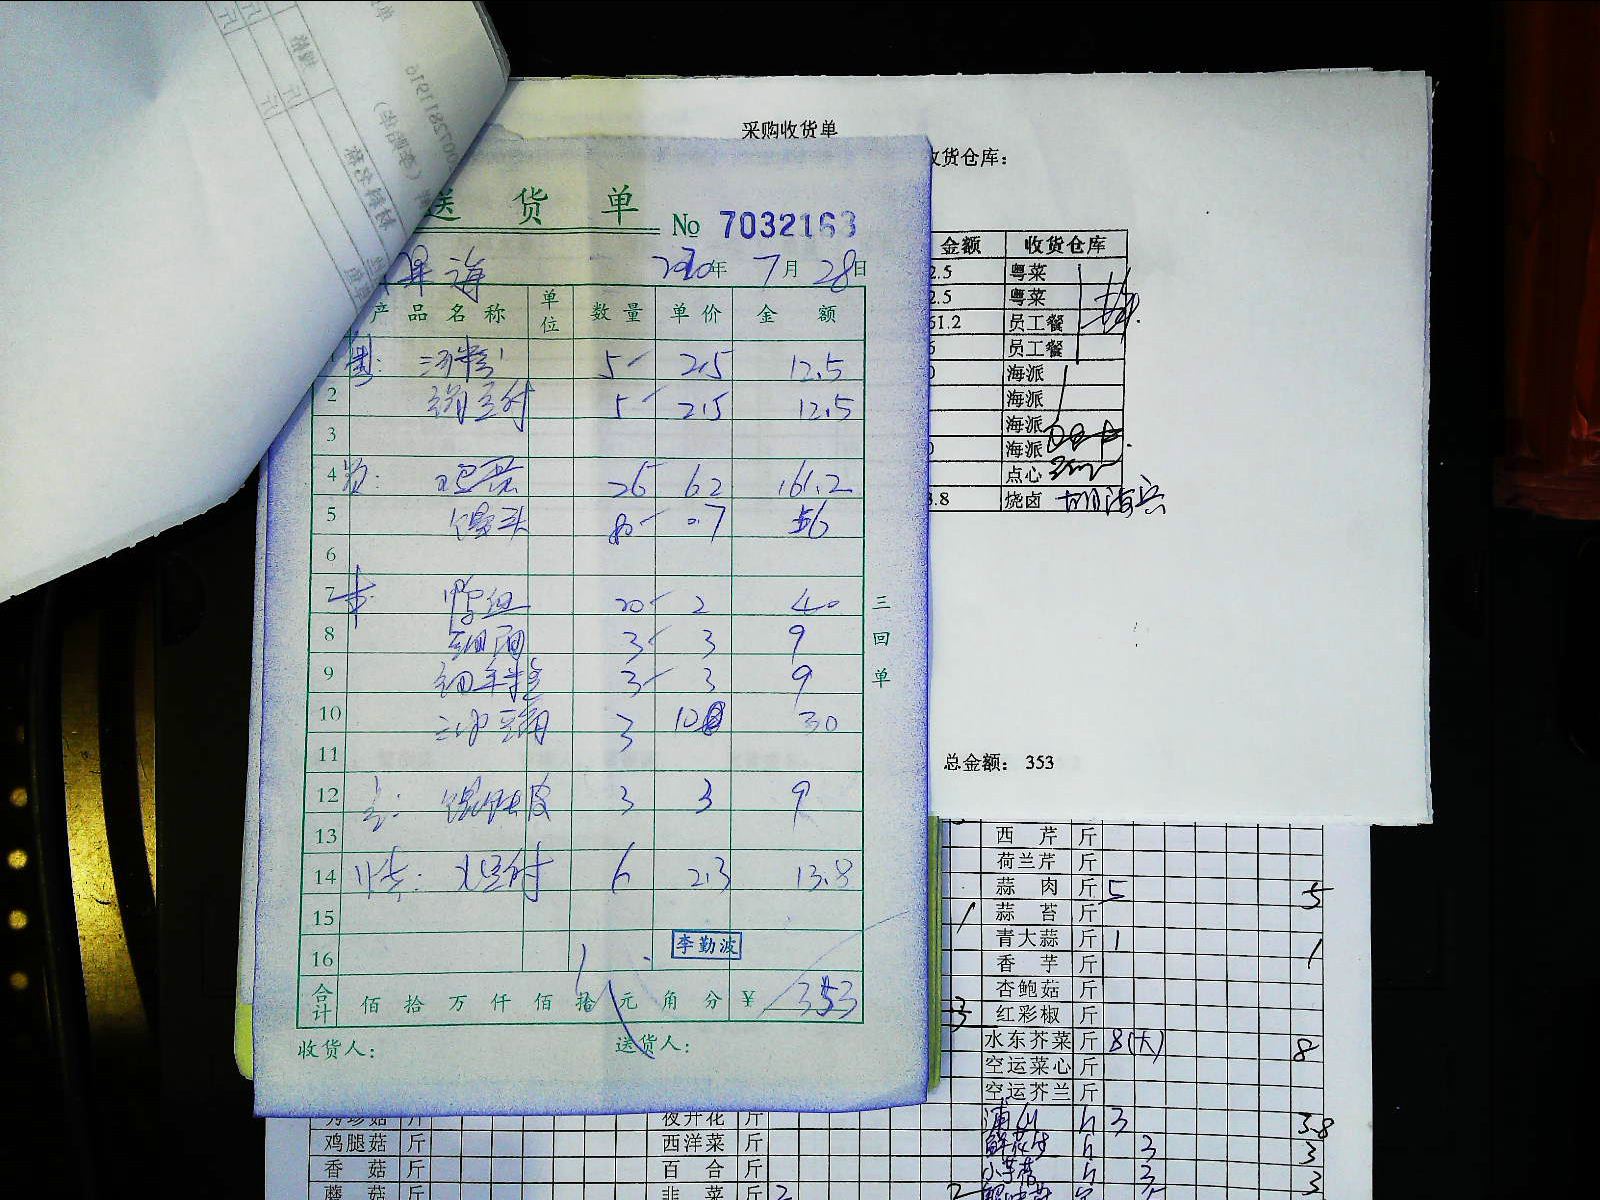 采购收货单
收货仓库：
送货单
No 7032163
2020年 7月 28日
产品名称 单位 数量 单价 金额
1 粤: 河粉 5 2.5 12.5
2 豆付 5 2.5 12.5
3
4 26 6.2 161.2
5 馒头 80 0.7 56
6
7 鸭血 20 2 40
8 3 3 9
9 3 3 9
10 3 10 30
11
12 点: 馄饨皮 3 3 9
13
14 烧: 水豆付 6 2.3 13.8
15
16 李勤波
合计 佰 拾 万 仟 佰 拾 元 角 分 ¥ 353
收货人： 送货人：
三回单
金额 收货仓库
2.5 粤菜
2.5 粤菜
61.2 员工餐
6 员工餐
0 海派
海派
海派
0 海派
点心
3.8 烧卤 胡海兵
总金额： 353
西芹 斤
荷兰芹 斤
蒜肉 斤 5 5
蒜苔 斤
青大蒜 斤 1 1
香芋 斤
杏鲍菇 斤
红彩椒 斤
水东芥菜 斤 8(大) 8
空运菜心 斤
空运芥兰 斤
秀珍菇 斤 夜开花 斤
鸡腿菇 斤 西洋菜 斤
香菇 斤 百合 斤
蘑菇 斤 韭菜 斤 2